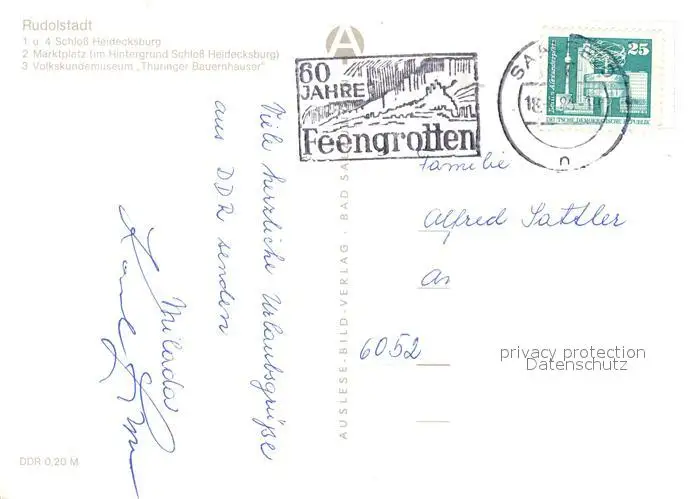 Rudolstadt
1 u. 4 Schloß Heidecksburg
2 Marktplatz (im Hintergrund Schloß Heidecksburg)
3 Volkskundemuseum „Thüringer Bauernhäuser"
A
60
JAHRE
Feengrotten
SAALFELD
25
Berlin, Alexanderplatz
DEUTSCHE DEMOKRATISCHE REPUBLIK
n
Viele herzliche Urlaubsgrüße
aus DDR senden
Milada
AUSLESE-BILD-VERLAG · BAD SAL
Familie
Alfred Sattler
6052
privacy protection
Datenschutz
DDR 0,20 M